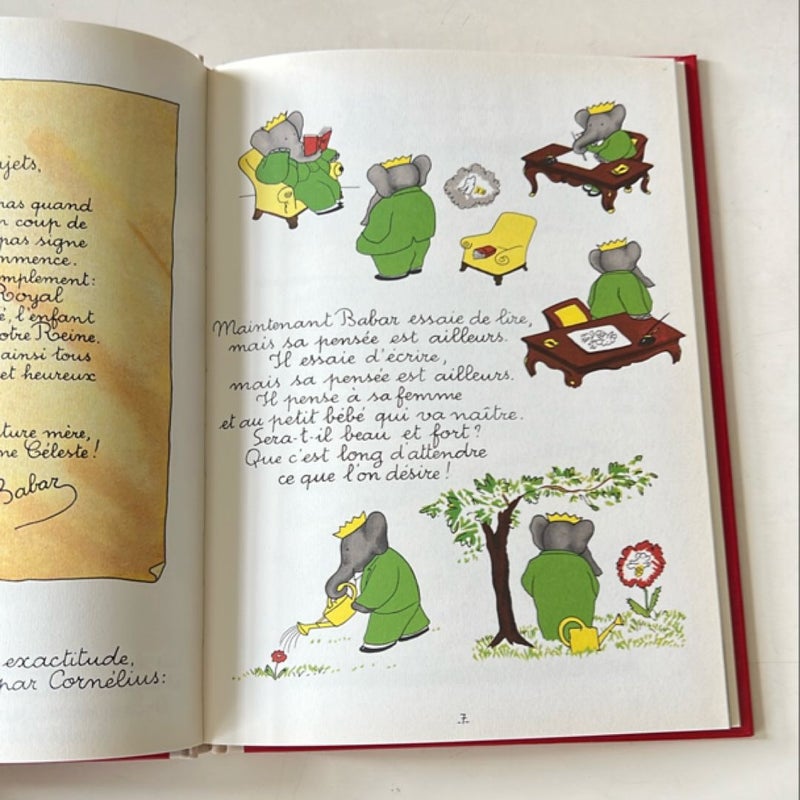 ujets,
pas quand
n coup de
pas signe
mmence.
mplement:
Royal
é, l'enfant
otre Reine.
ainsi tous
et heureux
ture mère,
ne Céleste!
Babar
exactitude,
par Cornélius:
Maintenant Babar essaie de lire,
mais sa pensée est ailleurs.
Il essaie d'écrire,
mais sa pensée est ailleurs.
Il pense à sa femme
et au petit bébé qui va naître.
Sera-t-il beau et fort?
Que c'est long d'attendre
ce que l'on désire!
7